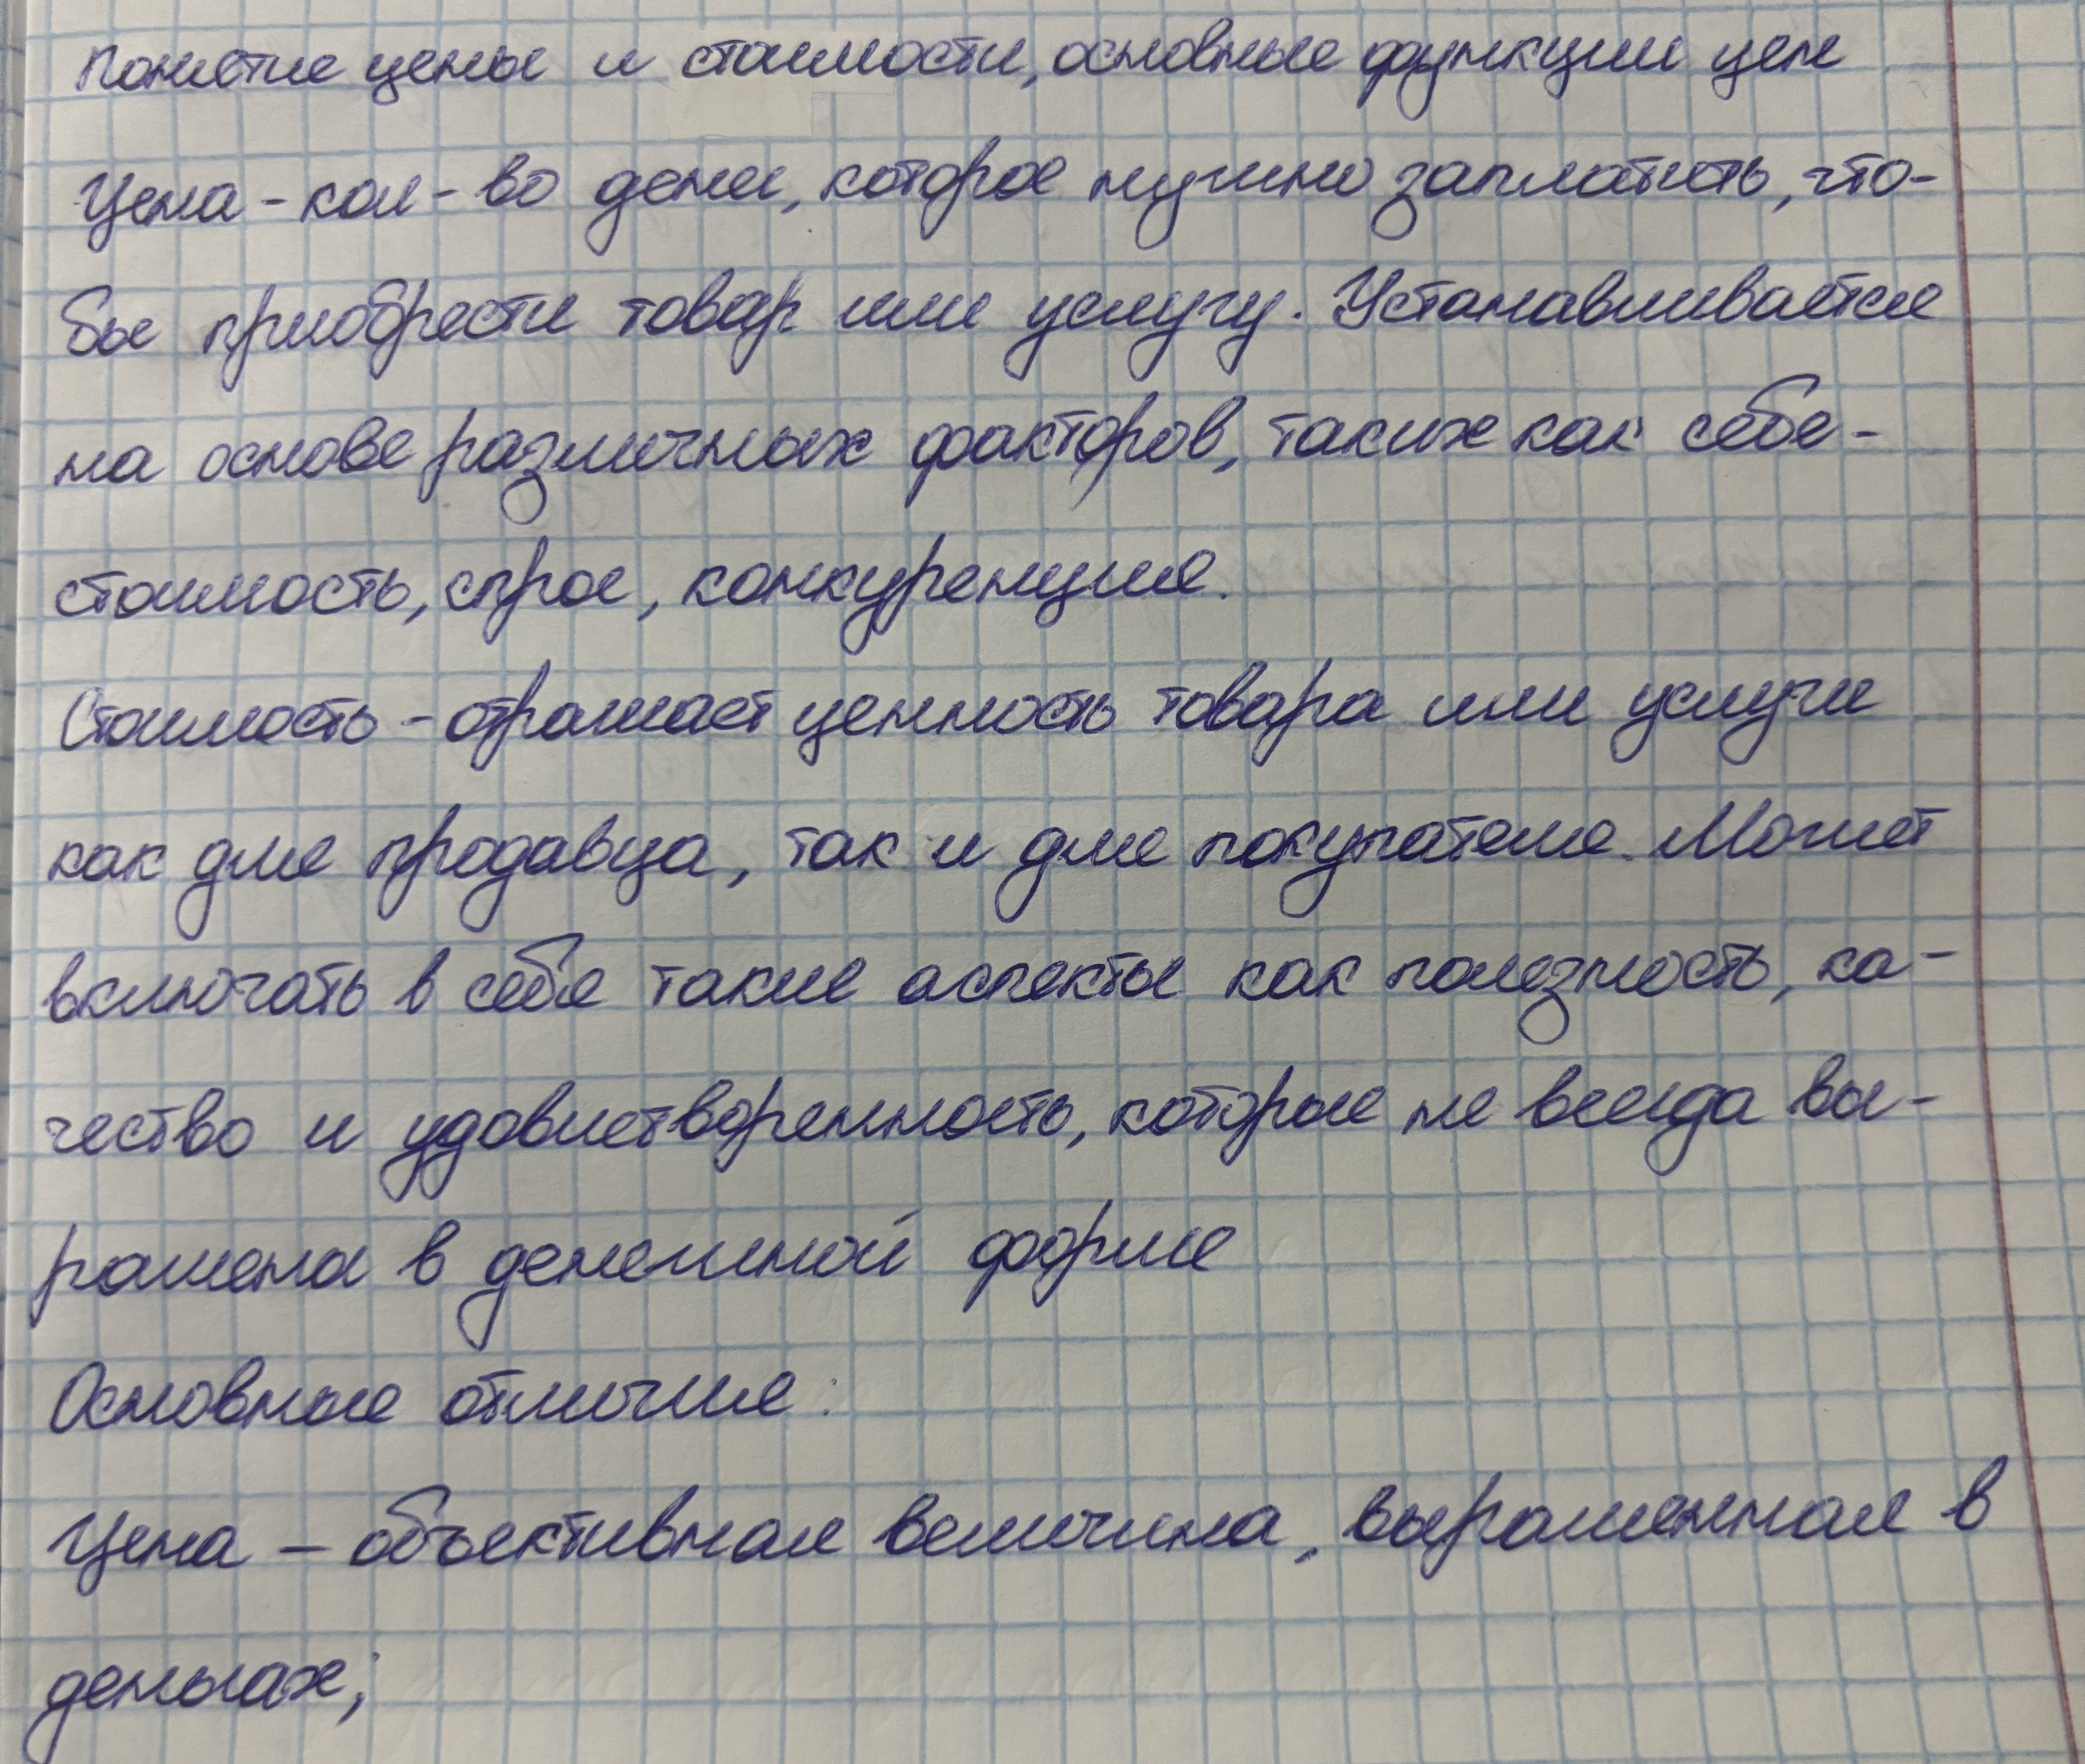 Понятие цены и стоимости, основные функции цен
Цена - кол-во денег, которое нужно заплатить, что-
бы приобрести товар или услугу. Устанавливается
на основе различных факторов, таких как себе-
стоимость, спрос, конкуренция.
Стоимость - отражает ценность товара или услуги
как для продавца, так и для покупателя. Может
включать в себя такие аспекты как полезность, ка-
чество и удовлетворенность, которые не всегда вы-
ражена в денежной форме
Основные отличия:
Цена – объективная величина, выраженная в
деньгах;